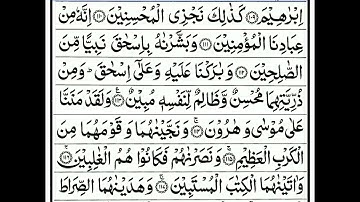 اِبْرٰهِيْمَ ﴿۱۰۹﴾ كَذٰلِكَ نَجْزِى الْمُحْسِنِيْنَ ﴿۱۱۰﴾ اِنَّهٗ مِنْ
عِبَادِنَا الْمُؤْمِنِيْنَ ﴿۱۱۱﴾ وَبَشَّرْنٰهُ بِاِسْحٰقَ نَبِيًّا مِّنَ
الصّٰلِحِيْنَ ﴿۱۱۲﴾ وَبٰرَكْنَا عَلَيْهِ وَعَلٰٓى اِسْحٰقَ ؕ وَمِنْ
ذُرِّيَّتِهِمَا مُحْسِنٌ وَّظَالِمٌ لِّنَفْسِهٖ مُبِيْنٌ ﴿۱۱۳﴾ وَلَقَدْ مَنَنَّا
عَلٰى مُوْسٰى وَهٰرُوْنَ ﴿۱۱۴﴾ وَنَجَّيْنٰهُمَا وَقَوْمَهُمَا مِنَ
الْكَرْبِ الْعَظِيْمِ ﴿۱۱۵﴾ وَنَصَرْنٰهُمْ فَكَانُوْا هُمُ الْغٰلِبِيْنَ ﴿۱۱۶﴾
وَاٰتَيْنٰهُمَا الْكِتٰبَ الْمُسْتَبِيْنَ ﴿۱۱۷﴾ وَهَدَيْنٰهُمَا الصِّرَاطَ